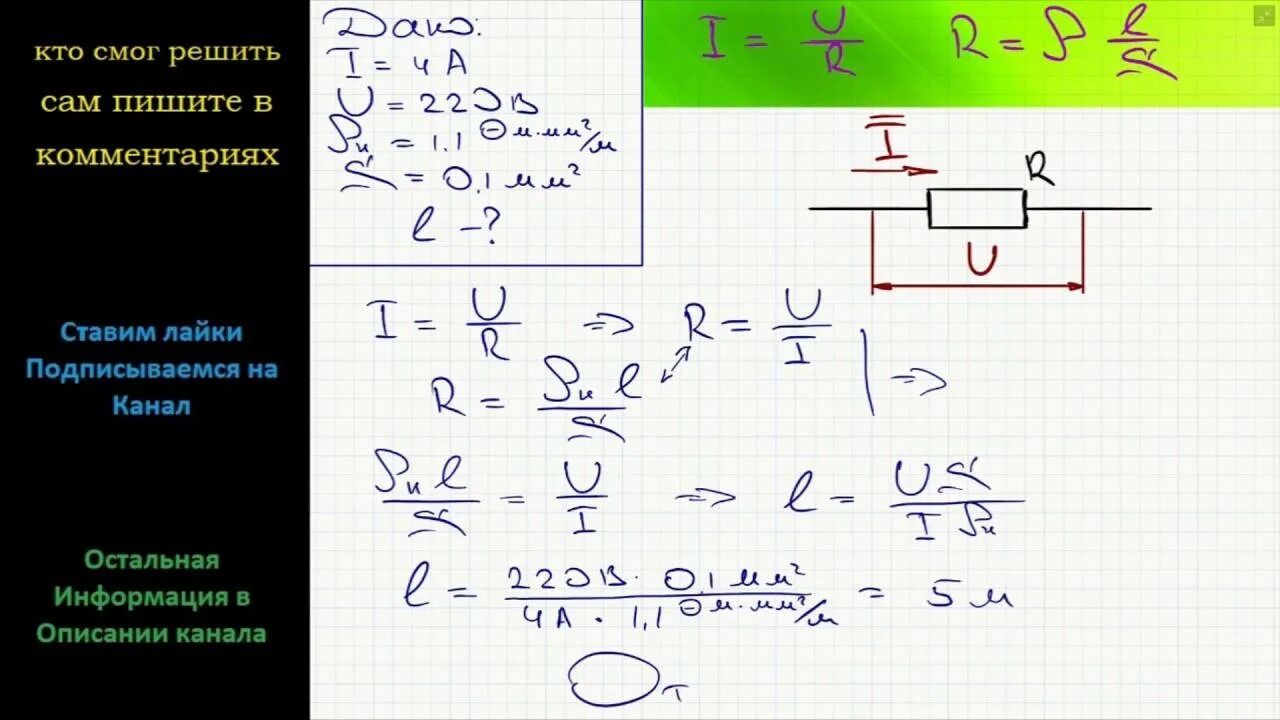 кто смог решить
сам пишите в
комментариях
Ставим лайки
Подписываемся на
Канал
Остальная
Информация в
Описании канала
Дано:
I = 4 А
U = 220В
ρн = 1.1 Ом·мм²/м
S = 0,1 мм²
l -?
I = U/R R = ρ l/S
I
R
U
I = U/R => R = U/I
R = ρн l/S =>
ρн l/S = U/I => l = US/Iρн
l = 220В · 0,1 мм² / 4А · 1,1 Ом·мм²/м = 5 м
От